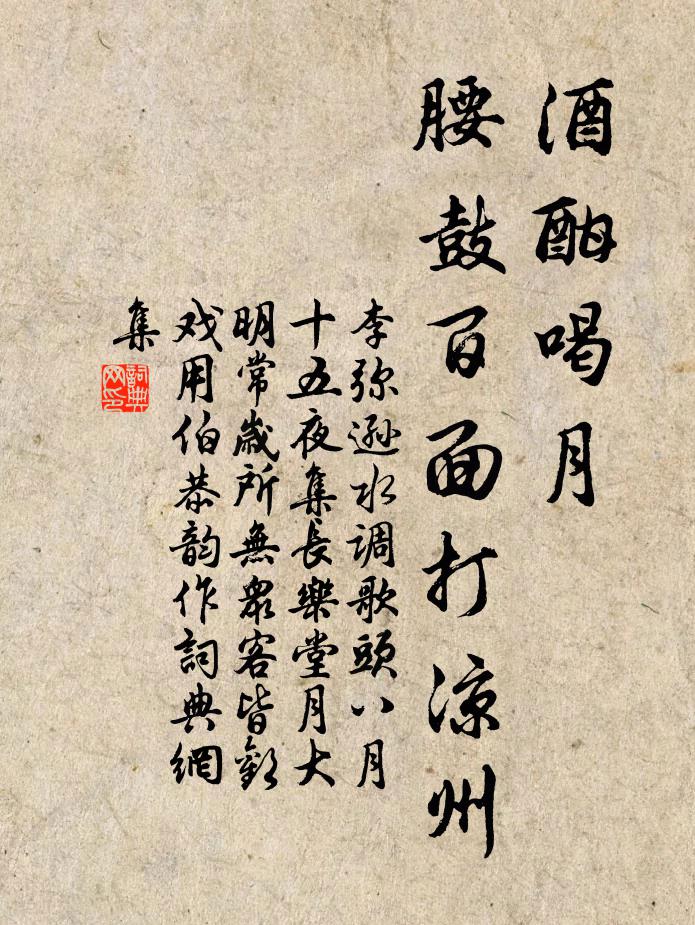 酒酣喝月
腰鼓百面打涼州
李弥遜水調歌頭八月
十五夜集長樂堂月大
明常歲所無衆客皆歡
戏用伯恭韵作詞典網
集
詞典
网印